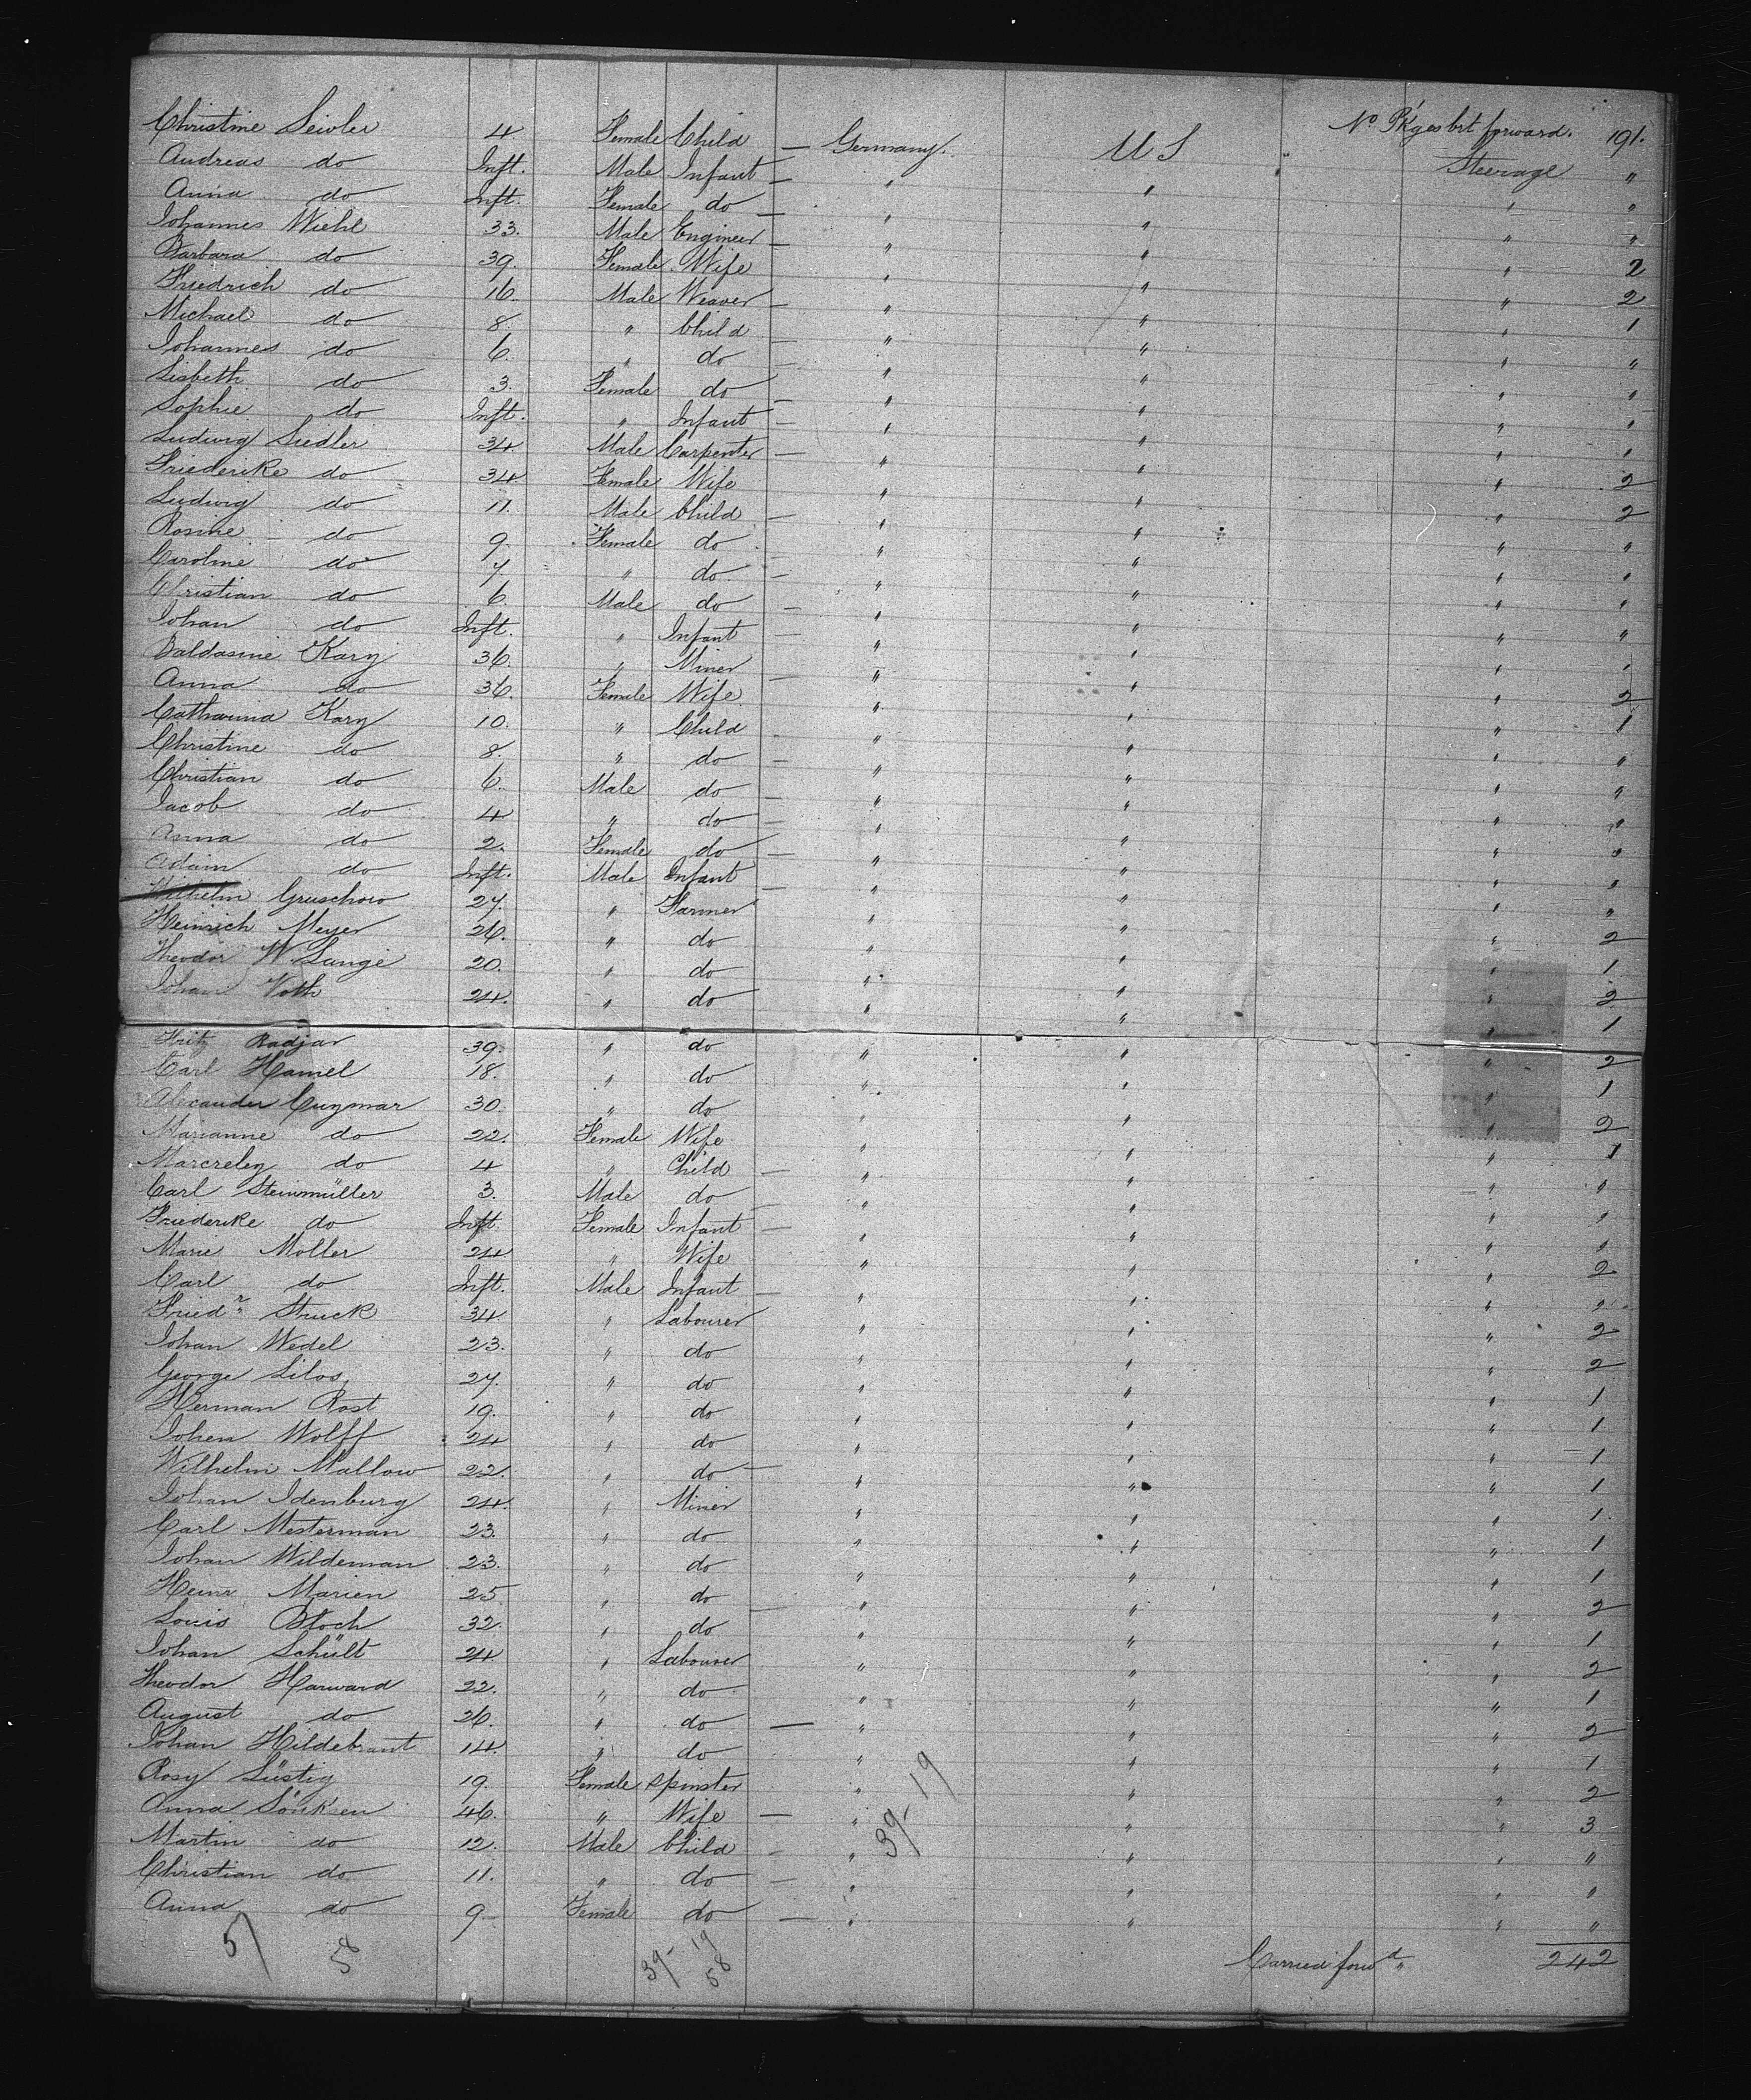 No Pkges brt forward. 191.
Christine Seidler 4 Female Child — Germany. U S Steerage "
Andreas do Inft. Male Infant — " " " "
Anna do Inft. Female do — " " " "
Johannes Wiehl 33. Male Engineer — " " " 2
Barbara do 39. Female Wife " " " 2
Friedrich do 16. Male Weaver — " " " 1
Michael do 8. " Child — " " " "
Johannes do 6. " do — " " " "
Lisbeth do 3. Female do — " " " "
Sophie do Inft. " Infant — " " " "
Ludwig Siedler 34 Male Carpenter — " " " 2
Friederike do 34 Female Wife " " " 2
Ludwig do 11. Male Child — " " " "
Rosine do 9. Female do " " " "
Caroline do 7. " do — " " " "
Christian do 6. Male do — " " " "
Johan do Inft. " Infant — " " " "
Baldasine Kary 36. " Miner — " " " 2
Anna do 36. Female Wife " " " 1
Catharina Kary 10. " Child — " " " "
Christine do 8. " do — " " " "
Christian do 6. Male do — " " " "
Jacob do 4 " do — " " " "
Anna do 2. Female do — " " " "
Adam do Inft. Male Infant — " " " "
Wilhelm Gruschow 27. " Farmer " " " 2
Heinrich Meyer 26. " do " " " 1
Theodor W Lange 20. " do " " " 2
Johan Voth 24. " do " " " 1
Fritz Radjar 39. " do " " " 2
Carl Hamel 18. " do " " " 1
Alexander Cuymar 30. " do " " " 2
Marianne do 22. Female Wife " " " 1
Marcreley do 4 " Child — " " " "
Carl Steinmüller 3. Male do — " " " "
Friederike do Inft Female Infant — " " " "
Marie Moller 24 " Wife " " " 2
Carl do Inft. Male Infant — " " " "
Friedr Struck 34 " Labourer " " " 2
Johan Wedel 23. " do " " " 2
George Silos 27. " do " " " 1
Herman Rost 19. " do " " " 1
Johen Wolff 24 " do " " " 1
Wilhelm Mallow 22. " do — " " " 1
Johan Idenburg 24. " Miner " " " 1.
Carl Mesterman 23. " do " " " 1
Johan Wildeman 23. " do " " " 1
Heinr Marien 25 " do — " " " 2
Louis Bloch 32. " do " " " 1
Johan Schült 24. " Labourer " " " 2
Theodor Harward 22. " do " " " 1
August do 26. " do — " " " 2
Johan Hildebrant 14. " do " " " 1
Rosy Lüstig 19. Female Spinster " " " 2
Anna Sönksen 46. " Wife — " " " 3
Martin do 12. Male Child — " " " "
Christian do 11. " do — " " " "
Anna do 9. Female do — " " " "
39-19
57 58 39-19 58 Carried forwd " 242